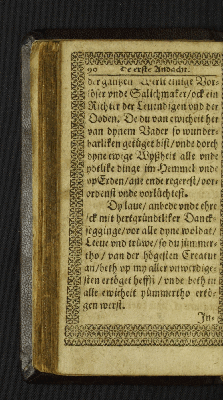 90 De erste Andacht.
der gantzen Werlt einige Vor-
löser vnde Salichmaker / ock ein
Richter der Leuendigen vnd der
Doden. De du van ewicheit her
van dynem Vader so wunder-
barliken getüget bist / vnde dorch
dyne ewige Wyßheit alle vnde
ydtlike dinge im Hemmel vnde
vp Erden / ane ende regerest / vor-
ordenst vnde vorlüchtest.
Dy laue / anbede vnde ehre
ick mit hertgründtliker Danck-
segginge / vor alle dyne woldat /
Leeue vnd trüwe / so du
tho / van der högesten Creatur
an / beth vp my aller vnwerdige-
sten ertöget heffst / vnde beth in
alle ewicheit yümmertho ertö-
gen werst.
In-